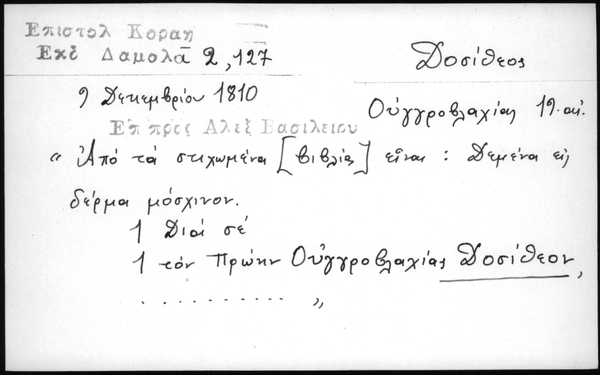 Επιστολ Κοραη
Εκδ Δαμαλᾶ 2, 127
Δοσίθεος
9 Δεκεμβρίου 1810
Οὐγγροβλαχίας 19. αἰ.
Επ προς Αλεξ Βασιλειου
" Ἀπό τά στιχωμένα [βιβλία] εἶναι : Δεμένα εἰς
δέρμα μόσχινον.
1 Διά σέ
1 τόν Πρώην Οὐγγροβλαχίας Δοσίθεον,
. . . . . . . . . . "